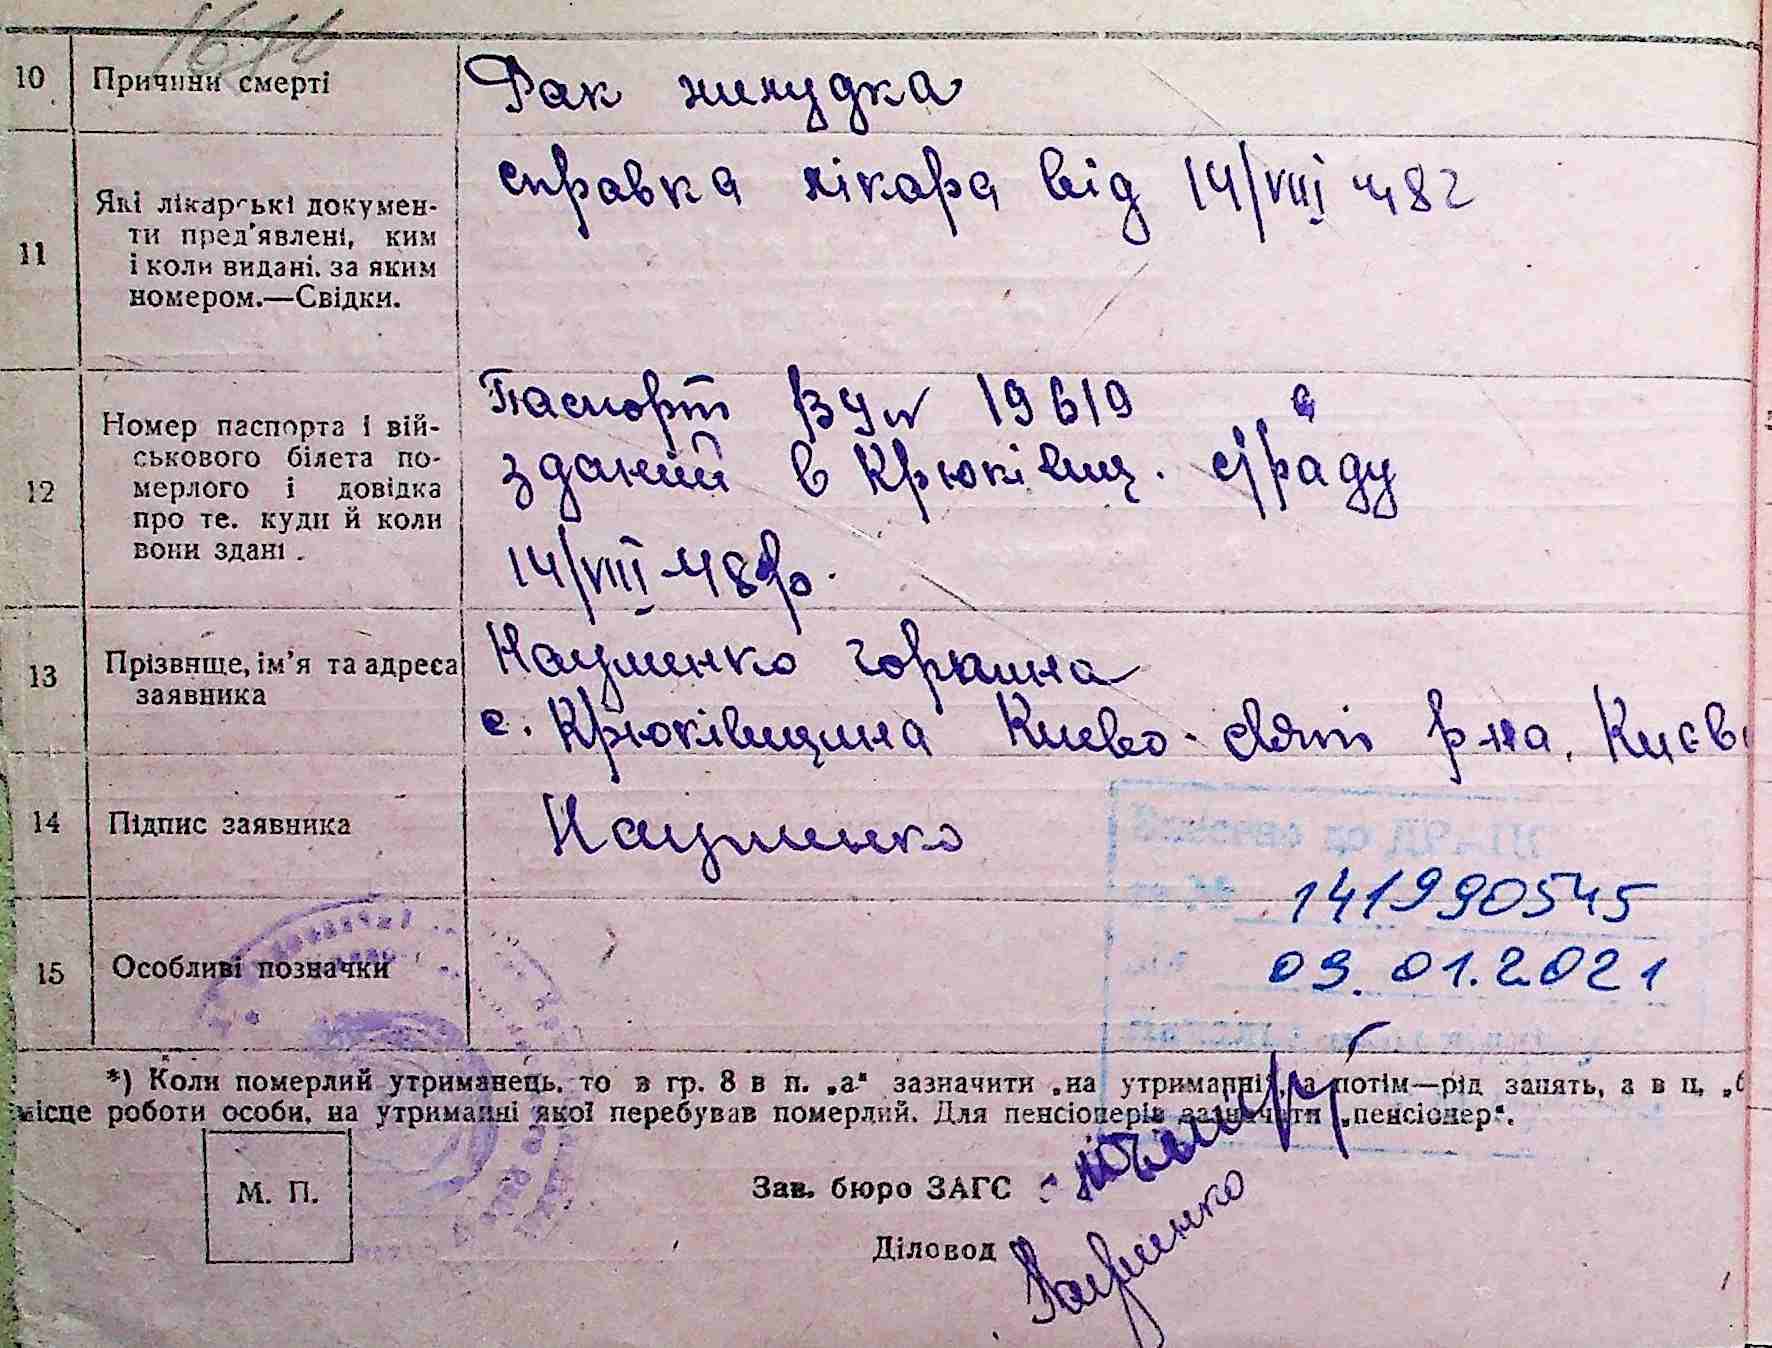 10 Причини смерті Рак жилудка
11 Які лікарські докумен-
ти пред'явлені, ким
і коли видані, за яким
номером.—Свідки.
справка лікара від 14/VIII 48 г
12 Номер паспорта і вій-
ськового білета по-
мерлого і довідка
про те, куди й коли
вони здані.
Паспорт 19619
зданий в Крюківщ. с/раду
14/VIII-48 р.
13 Прізвище, ім'я та адреса
заявника
Науменко
с. Крюківщина Києво-Свят р-на, Києв
14 Підпис заявника Науменко
141990545
09.01.2021
15 Особливі позначки
*) Коли померлий утриманець, то в гр. 8 в п. „а" зазначити „на утриманні", а потім—рід занять, а в п. „б
місце роботи особи, на утриманні якої перебував померлий. Для пенсіонерів зазначити „пенсіонер".
М. П.
Зав. бюро ЗАГС
Діловод Науменко